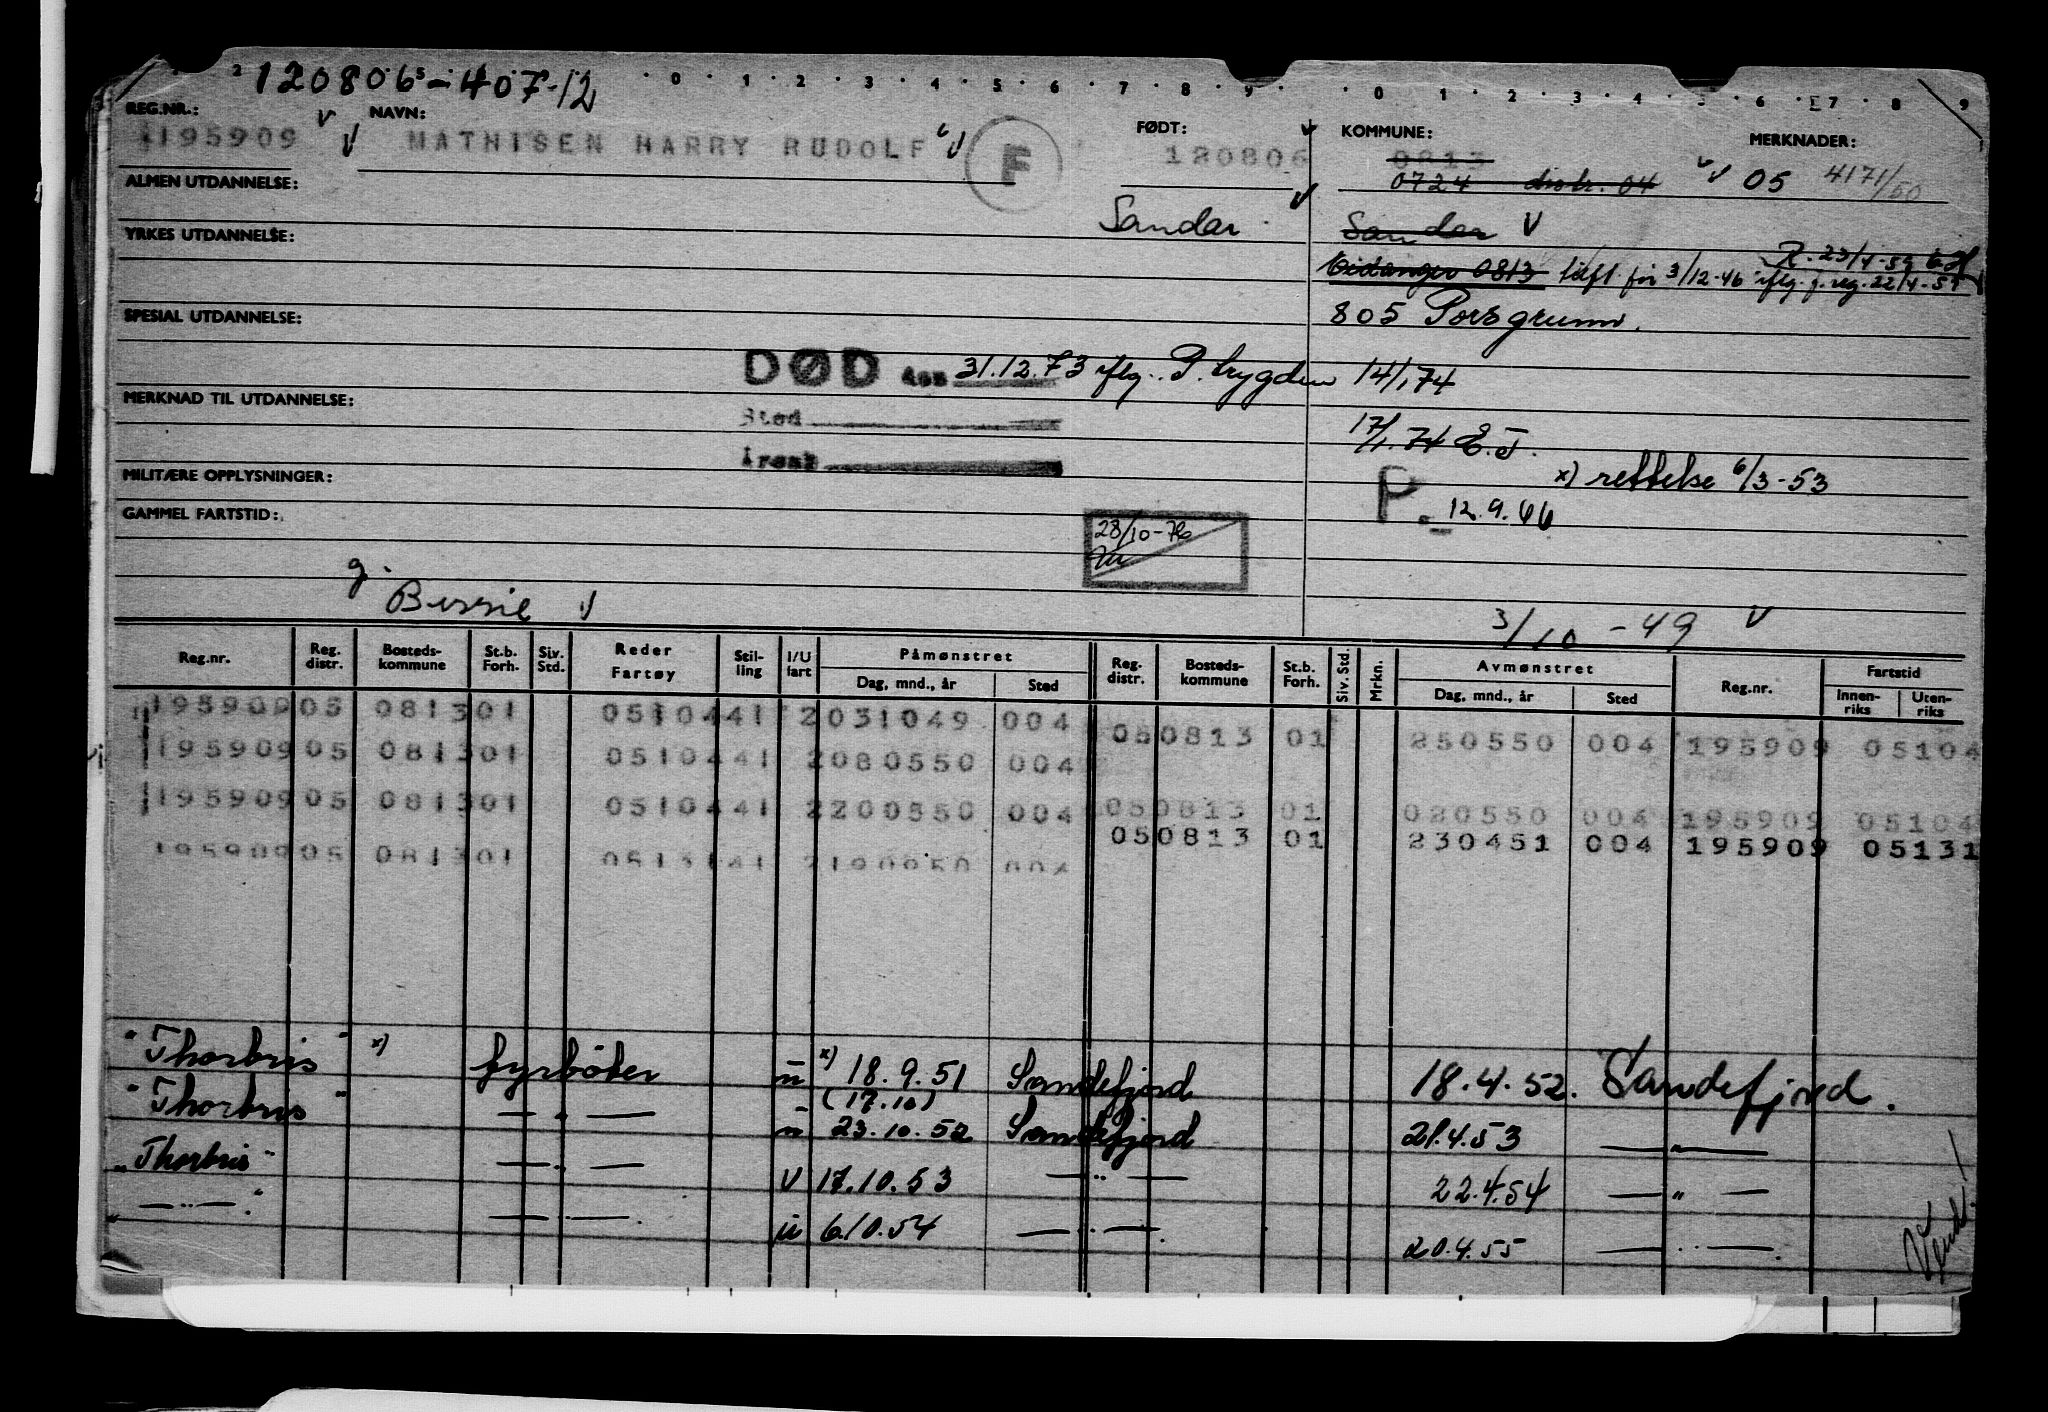 120806-407-12
REG.NR.: NAVN: FØDT: KOMMUNE: MERKNADER:
195909 MATHISEN HARRY RUDOLF F 120806 0813
0724 distr. 04 05 4171/50
ALMEN UTDANNELSE:
Sandar Sandar V
YRKES UTDANNELSE:
R. 23/4-59
Eidanger 0813 løft før 3/12-46 iflg. f. reg. 22/4-59
805 Porsgrunn.
SPESIAL UTDANNELSE:
DØD den 31.12.73 iflg. P. trygden 14/1 74
MERKNAD TIL UTDANNELSE:
Sted
17/1.74 E.J.
Årsak
x) rettelse 6/3-53
MILITÆRE OPPLYSNINGER:
P. 12.9.66
GAMMEL FARTSTID:
28/10-76
g.
Bessie V
3/10-49 V
Reg.nr. Reg. distr. Bosteds-kommune St.b. Forh. Siv. Std. Reder Fartøy Stil-ling I/U fart Påmønstret Dag, mnd., år Sted Reg. distr. Bosteds-kommune St.b. Forh. Siv. Std. Mrkn. Avmønstret Dag, mnd., år Sted Reg.nr. Fartstid Innen-riks Uten-riks
195909 05 0813 01 0510441 2 031049 004 05 0813 01 250550 004 195909 05104
195909 05 0813 01 0510441 2 080550 004
195909 05 0813 01 0510441 2 200550 004 05 0813 01 020550 004 195909 05104
05 0813 01 230451 004 195909 05131
195909 05 0813 01 0513141 2 190950 004
"Thorbris" x) fyrbøter u x) 18.9.51 Sandefjord 18.4.52. Sandefjord.
(17.10)
"Thorbris" — " — u 23.10.52 Sandefjord 21.4.53 — " —
"Thorbris" — " — U 17.10.53 — " — 22.4.54 — " —
" — " — " — " — u 6.10.54 — " — 20.4.55 — " —
Vend!